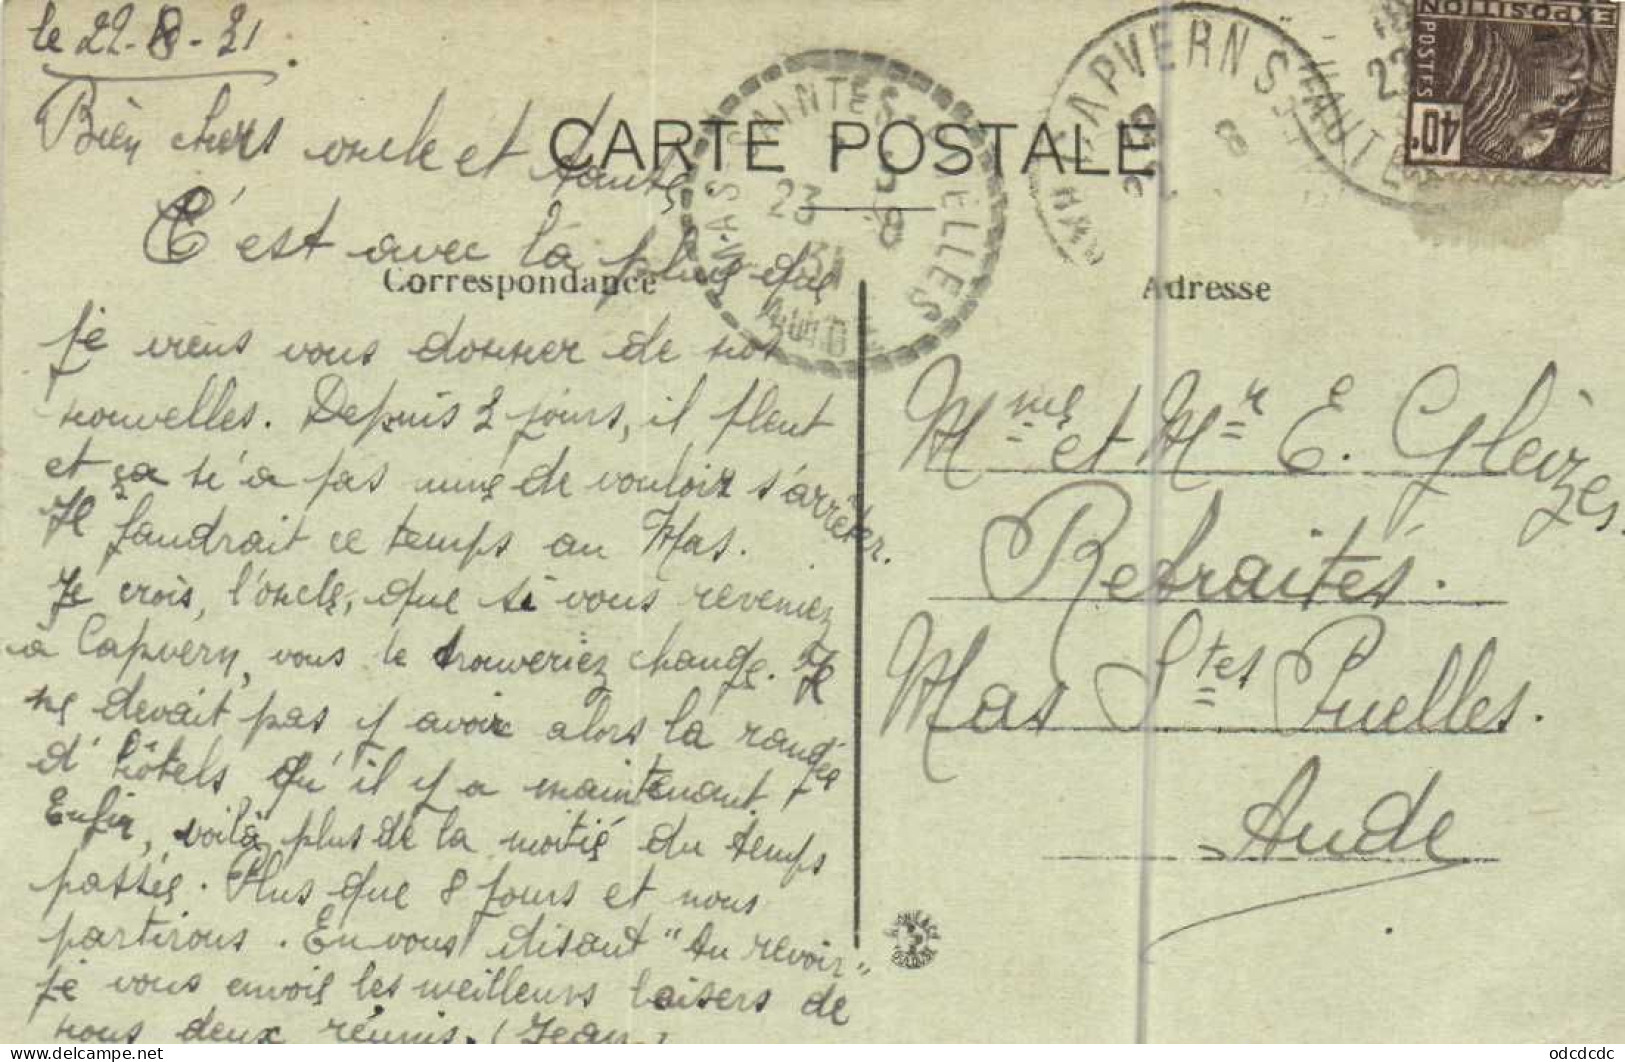 le 22-8-31.
Bien chers oncle et tante,
C'est avec la pluie que
je viens vous donner de nos
nouvelles. Depuis 2 jours, il pleut
et ça n'a pas mine de vouloir s'arrêter.
Il faudrait ce temps au Mas.
Je crois, l'oncle, que si vous reveniez
à Capvern, vous le trouveriez changé. Il
ne devait pas y avoir alors la rangée
d'hôtels qu'il y a maintenant.
Enfin, voilà plus de la moitié du temps
passée. Plus que 8 jours et nous
partirons. En vous disant "Au revoir"
je vous envoie les meilleurs baisers de
nous deux réunis. (Jean)
CARTE POSTALE
Correspondance
Adresse
Mme et Mr E. Gleizes
Retraités.
Mas Stes Puelles.
Aude
MAS SAINTES PUELLES
23
8
31
AUDE
CAPVERN
HAUTES
8
EXPOSITION
POSTES
40c
odcdcdc